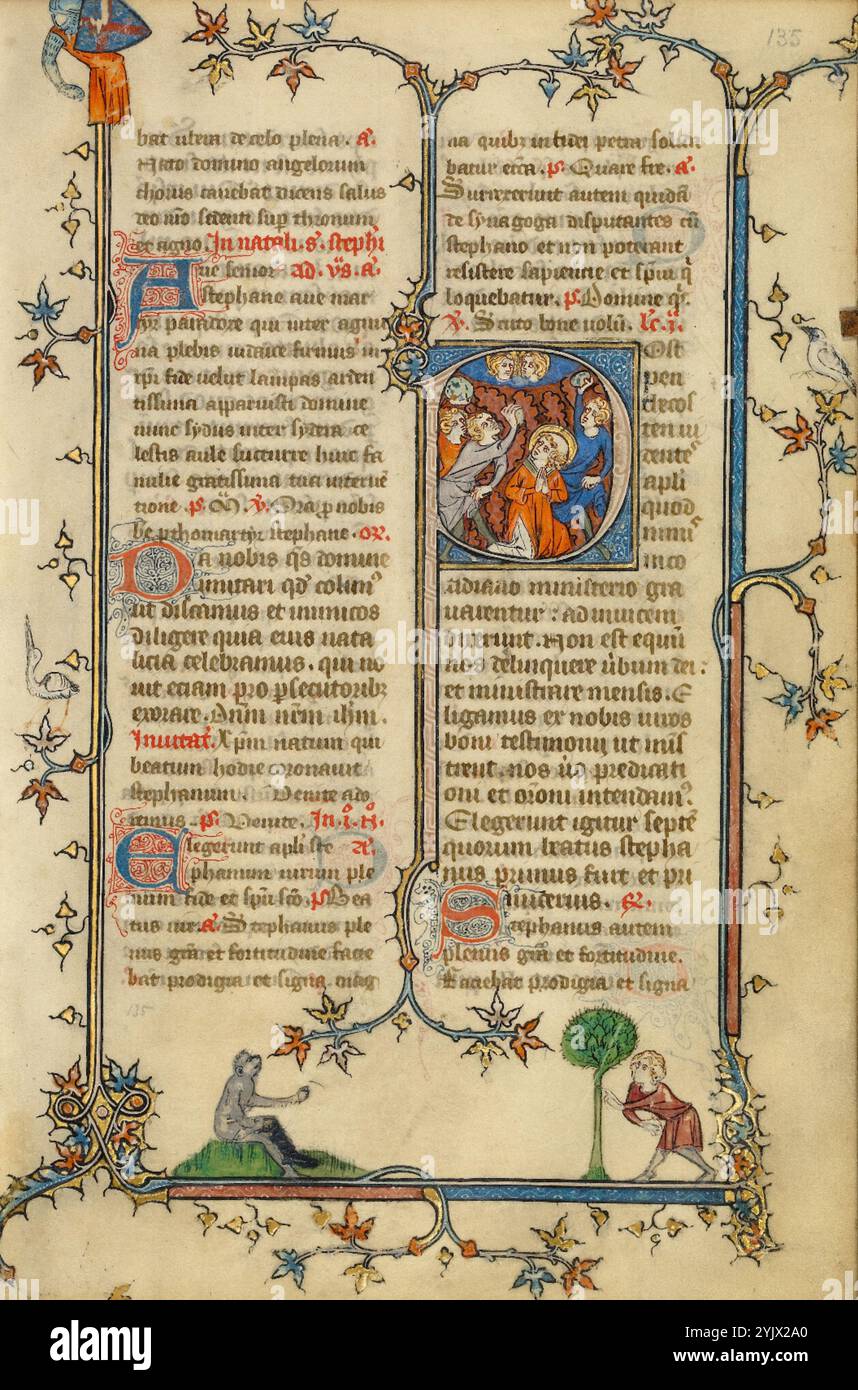 135
bat ubera de celo plena . a͂.
Nato domino angelorum
chorus canebat dicens salus
deo nr̄o sedenti sup̄ thronum
et agno. In natali. s. stephi
Aue senior ad. vs̄. a͂.
stephane aue mar
tyr
qui inter agmi
na plebis iudaice firmus in
xp̄i fide uelut lampas arden
tissima apparuisti domine
nunc sydus inter sydera ce
lestis aule succurre huic fa
milie gratissima tua interuē
tione . p̄. v̄. Ora p nobis
be pthomartyr stephane . or̄.
Da nobis qs̄ domine
imitari qd̄ colim⁹
ut discamus et inimicos
diligere quia eius nata
licia celebramus . qui no
uit eciam pro p̄secutoribꝫ
exorare . Dn̄m nr̄m ih̄m.
Inuitat̄. Xp̄m natum qui
beatum hodie coronauit
stephanum . Venite ado
remus . p̄s. Venite . In. i. N̄.
Elegerunt apl̄i ste a͂.
phanum uirum ple
num fide et sp̄u sc̄o. p̄s Bea
tus uir. a͂. Stephanus ple
nus gr̄a et fortitudine facie
bat prodigia et signa mag
135
na quibꝫ in fidei petra solida
batur ecc̄a . p̄s. Quare fre. a͂.
Surrexerunt autem quidā
de synagoga disputantes cū
stephano et non poterant
resistere sapiencie et sp̄ui q̄
loquebatur. p̄s. Domine q̄.
v̄. Scuto bone uolū. lc̄. i.
Ost
pen
thecos
ten ui
dentes
apl̄i
quod
nimis
in co
tidiano ministerio gra
uarentur : ad inuicem
dixerunt. Non est equū
nos delinquere ūbum dei :
et ministrare mensis. E
ligamus ex nobis uiros
boni testimonij ut mīs
trent. nos ū predicati
oni et or̄oni intendam⁹.
Elegerunt igitur septē
quorum beatus stepha
nus primus fuit et pri
micerius. R̄.
Stephanus autem
plenus gr̄a et fortitudine.
Faciebat prodigia et signa
alamy
Image ID: 2YJX2A0
www.alamy.com